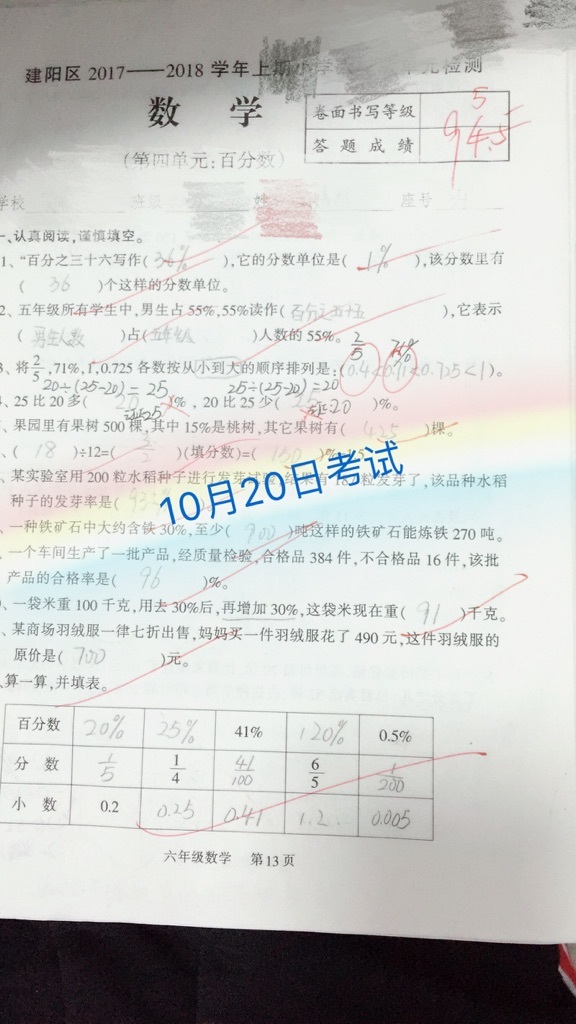 建阳区 2017——2018 学年上期小学 单元检测
数 学
卷面书写等级
5
答 题 成 绩
94.5
(第四单元:百分数)
学校 班级 姓 座号
一、认真阅读,谨慎填空。
1、“百分之三十六写作( 36% ),它的分数单位是( 1% ),该分数里有
( 36 )个这样的分数单位。
2、五年级所有学生中,男生占 55%,55%读作( 百分之五十五 ),它表示
( 男生人数 )占( 五年级 )人数的 55%。
2/5 71%
3、将2/5,71%,1,0.725 各数按从小到大的顺序排列是:(0.4<0.71<0.725<1)。
20÷(25-20)= 25 25÷(25-20)=20
4、25 比 20 多( 20 )%，20 比 25 少( 25 )%。
、果园里有果树 500 棵,其中 15%是桃树,其它果树有( 425 )棵。
、( 18 )÷12=( 3/2 )(填分数)=( 150 )%
、某实验室用 200 粒水稻种子进行发芽试验,结果有 18 粒发芽了,该品种水稻
种子的发芽率是(
10月20日考试
、一种铁矿石中大约含铁 30%,至少( 900 )吨这样的铁矿石能炼铁 270 吨。
、一个车间生产了一批产品,经质量检验,合格品 384 件,不合格品 16 件,该批
产品的合格率是( 96 )%。
、一袋米重 100 千克,用去 30%后,再增加 30%,这袋米现在重( 91 )千克。
、某商场羽绒服一律七折出售,妈妈买一件羽绒服花了 490 元,这件羽绒服的
原价是( 700 )元。
、算一算,并填表。
百分数 20% 25% 41% 120% 0.5%
分 数 1/5 1/4 41/100 6/5 1/200
小 数 0.2 0.25 0.41 1.2 0.005
六年级数学 第 13 页